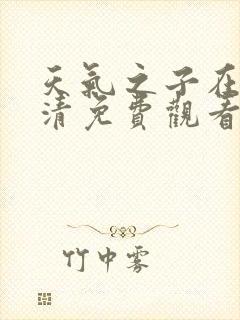 天氣之子在
清免費觀看
竹中雾